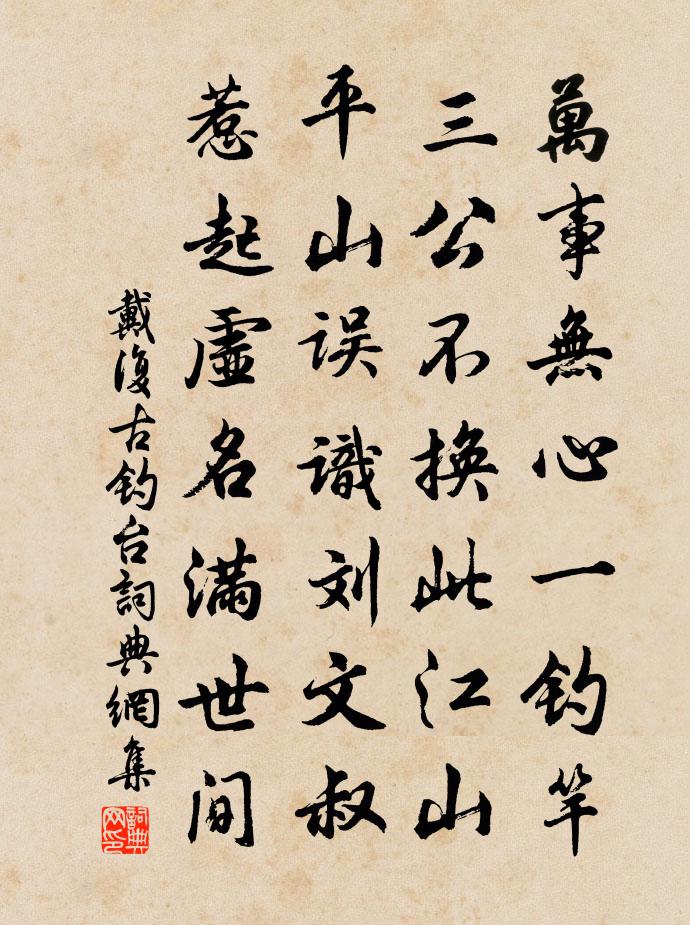 萬事無心一钓竿
三公不换此江山
平山误識刘文叔
惹起虛名满世间
戴復古钓台詞典網集
詞典網印